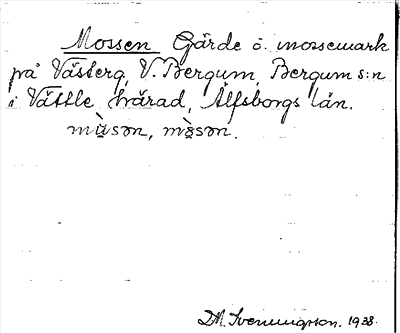 Mossen Gärde o. mossemark
på Västerg., V. Bergum, Bergum s:n
i Vättle härad, Älfsborgs län.
mùsən, mòsən.
1938.